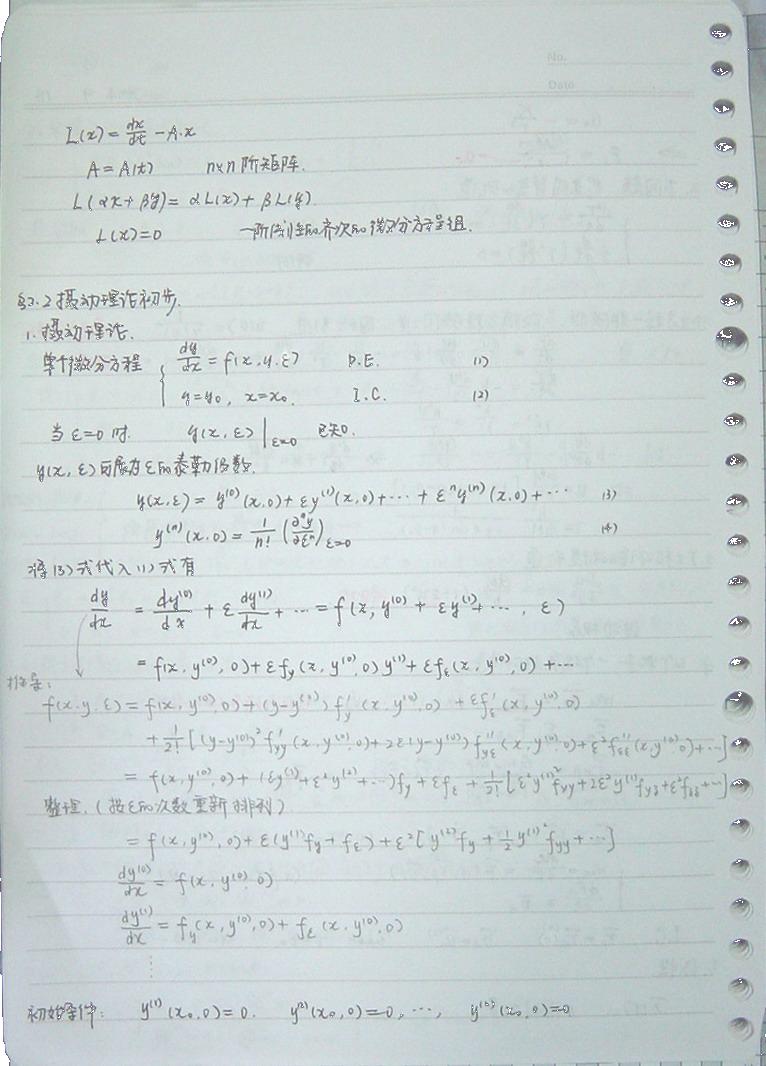 No.
Date
L(x) = dx/dt − A·x
A = A(t)  n×n 阶矩阵.
L(αx + βy) = αL(x) + βL(y).
L(x) = 0  一阶线性的齐次的微分方程组.
§2.2 摄动理论初步.
1. 摄动理论.
单个微分方程 { dy/dx = f(x, y, ε)  D.E.  (1)
y = y₀, x = x₀.  I.C.  (2)
当 ε=0 时.  y(x, ε)|_{ε=0} 已知.
y(x, ε) 可展为 ε 的泰勒级数.
y(x, ε) = y⁽⁰⁾(x, 0) + εy⁽¹⁾(x, 0) + ⋯ + εⁿy⁽ⁿ⁾(x, 0) + ⋯  (3)
y⁽ⁿ⁾(x, 0) = 1/n! (∂ⁿy/∂εⁿ)_{ε=0}  (4)
将(3)式代入(1)式有
dy/dx = dy⁽⁰⁾/dx + ε dy⁽¹⁾/dx + ⋯ = f(x, y⁽⁰⁾ + εy⁽¹⁾ + ⋯, ε)
= f(x, y⁽⁰⁾, 0) + εf_y(x, y⁽⁰⁾, 0) y⁽¹⁾ + εf_ε(x, y⁽⁰⁾, 0) + ⋯
推导:
f(x, y, ε) = f(x, y⁽⁰⁾, 0) + (y−y⁽⁰⁾) f'_y(x, y⁽⁰⁾, 0) + εf'_ε(x, y⁽⁰⁾, 0)
+ 1/2! [(y−y⁽⁰⁾)² f''_yy(x, y⁽⁰⁾, 0) + 2ε(y−y⁽⁰⁾) f''_yε(x, y⁽⁰⁾, 0) + ε² f''_εε(x, y⁽⁰⁾, 0) + ⋯]
= f(x, y⁽⁰⁾, 0) + (εy⁽¹⁾ + ε²y⁽²⁾ + ⋯) f_y + εf_ε + 1/2! [ε²y⁽¹⁾² f_yy + 2ε²y⁽¹⁾ f_yε + ε² f_εε + ⋯]
整理. (按ε的次数重新排列)
= f(x, y⁽⁰⁾, 0) + ε(y⁽¹⁾f_y + f_ε) + ε²[y⁽²⁾f_y + 1/2 y⁽¹⁾² f_yy + ⋯]
dy⁽⁰⁾/dx = f(x, y⁽⁰⁾, 0)
dy⁽¹⁾/dx = f_y(x, y⁽⁰⁾, 0) + f_ε(x, y⁽⁰⁾, 0)
⋮
初始条件:  y⁽¹⁾(x₀, 0) = 0.  y⁽²⁾(x₀, 0) = 0, ⋯,  y⁽ⁿ⁾(x₀, 0) = 0